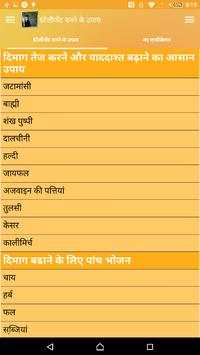 इंटेलीजेंट बनने के उपाय
इंटेलीजेंट बनने के उपाय
दिमाग तेज करने और याददाश्त बढ़ाने का आसान
उपाय
जटामांसी
बाह्मी
शंख पुष्पी
दालचीनी
हल्दी
जायफल
अजवाइन की पत्तियां
तुलसी
केसर
कालीमिर्च
दिमाग बढाने के लिए पांच भोजन
चाय
हर्ब
फल
सब्जियां